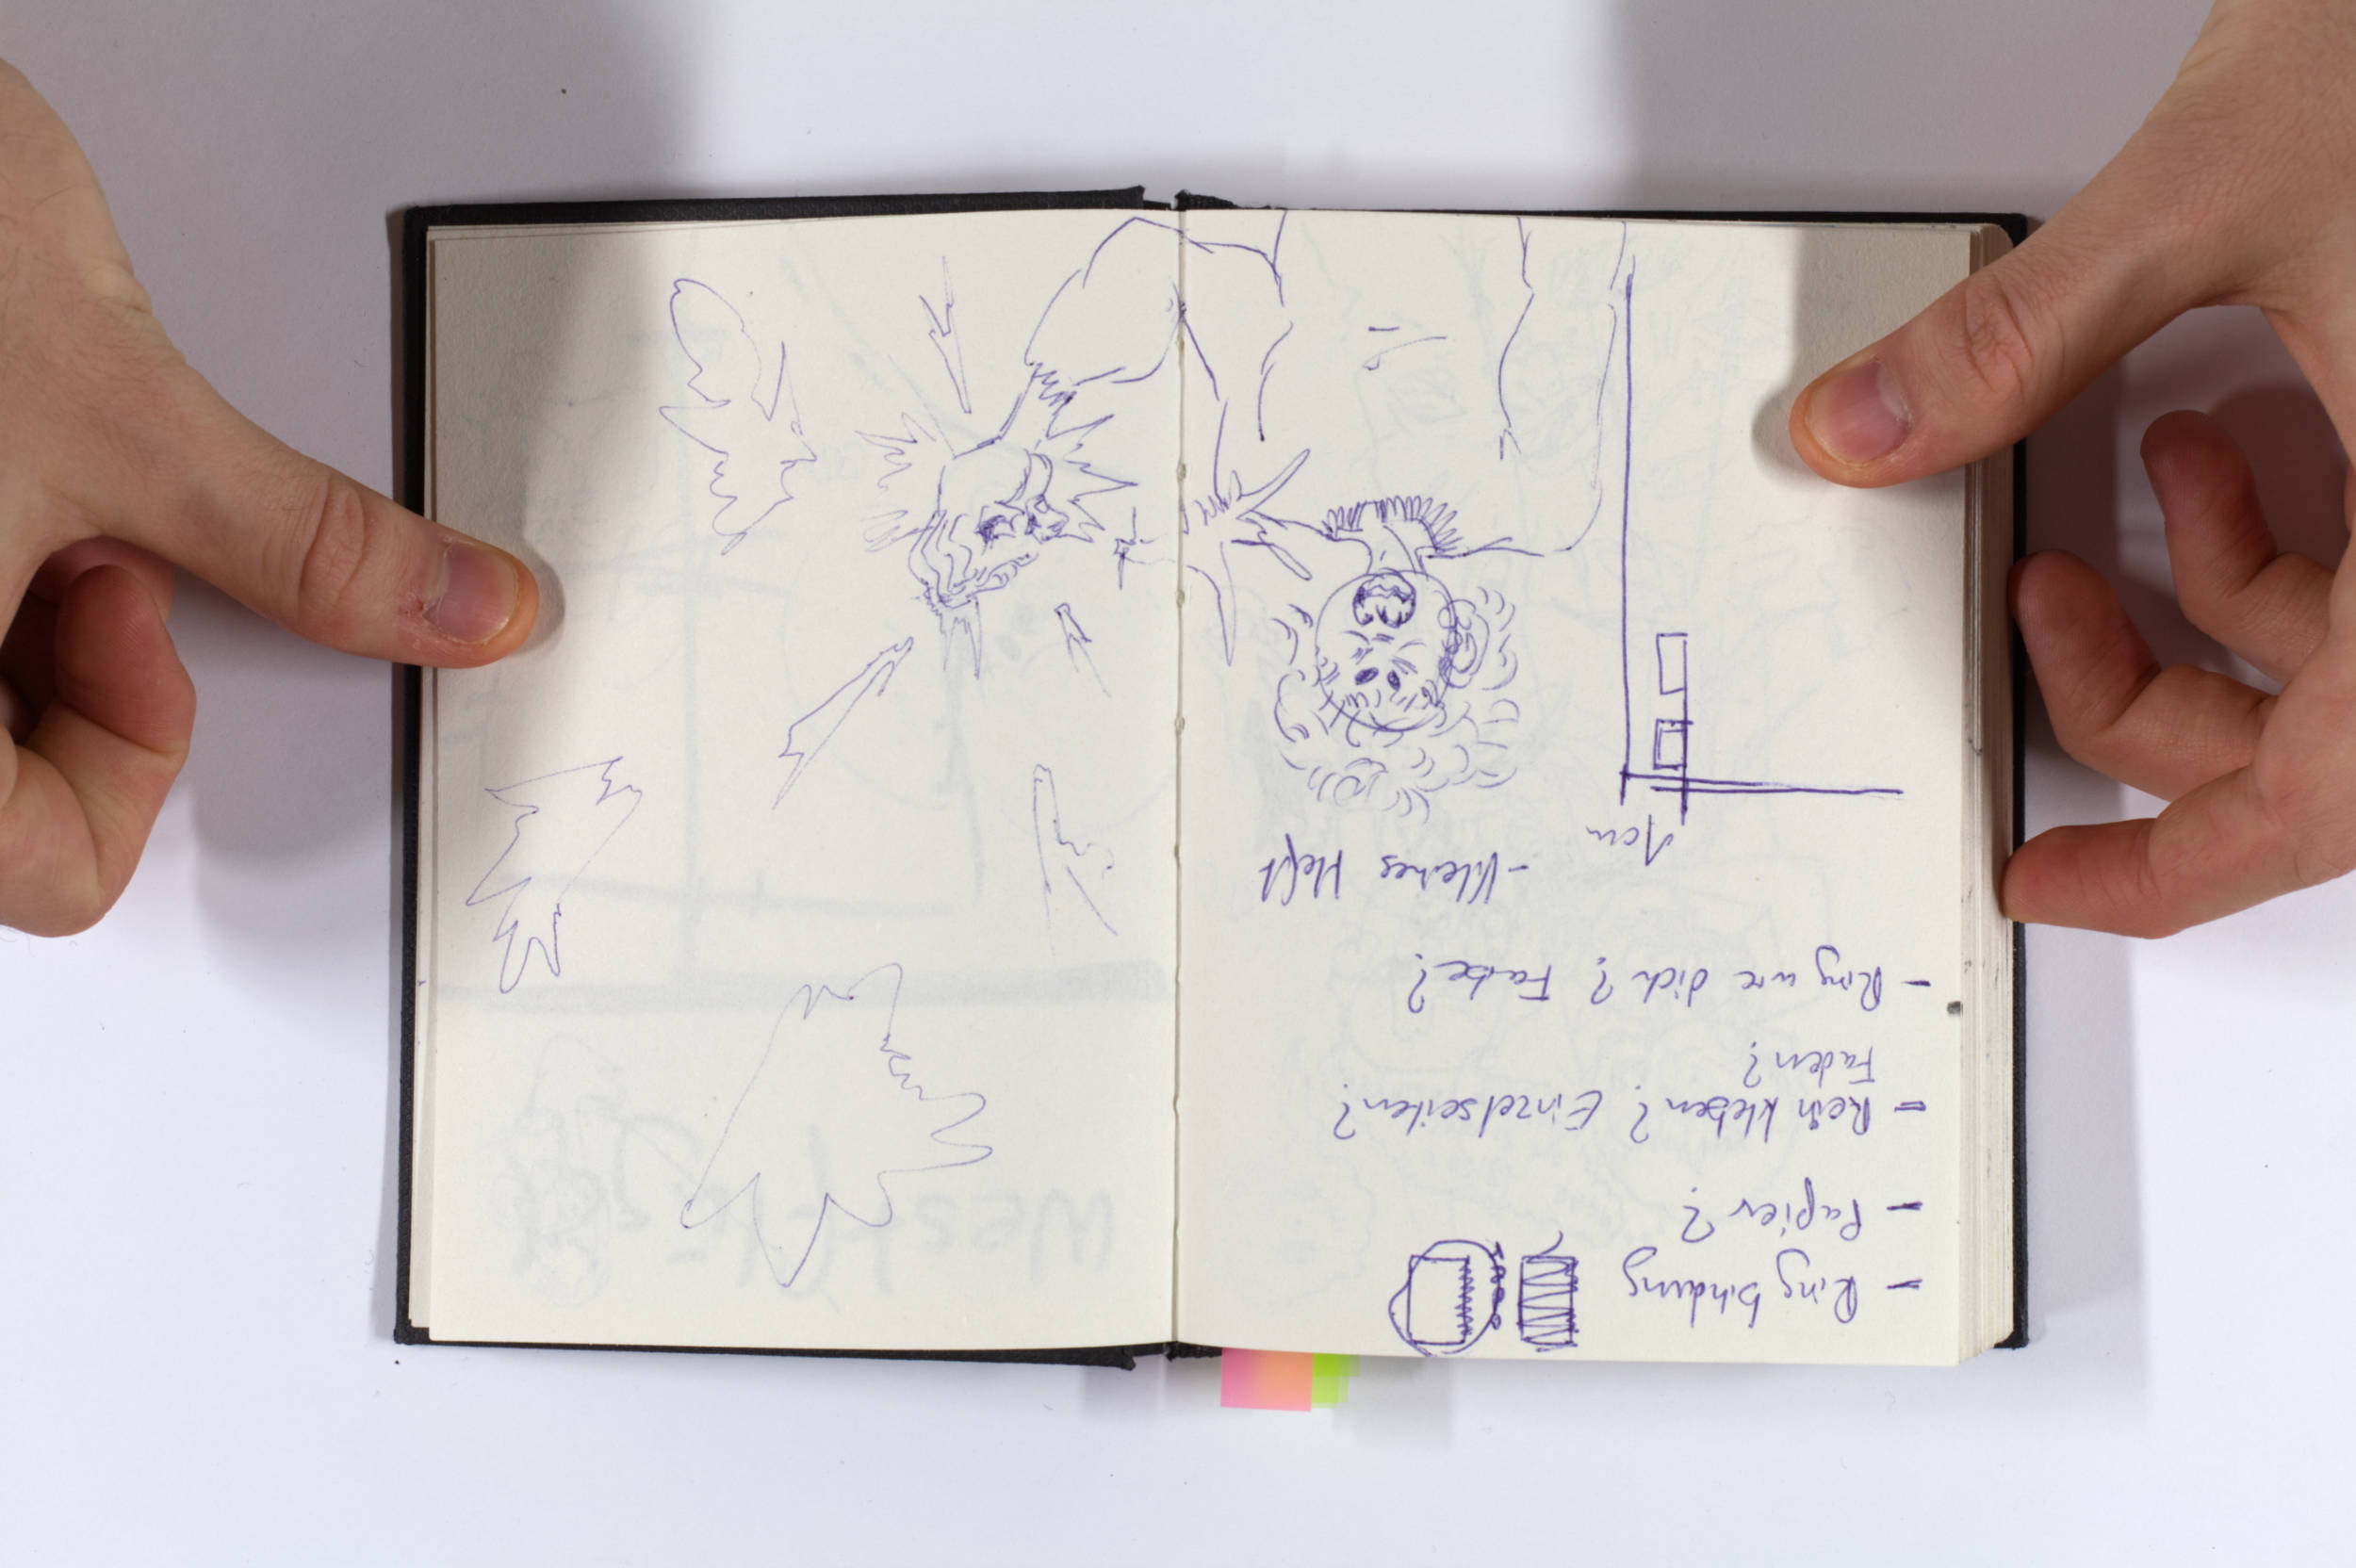 - Ringbindung
- Papier?
- Rein kleben? Einzelseiten?
Faden?
- Ring wie dick? Farbe?
- Kleines Heft
1cm